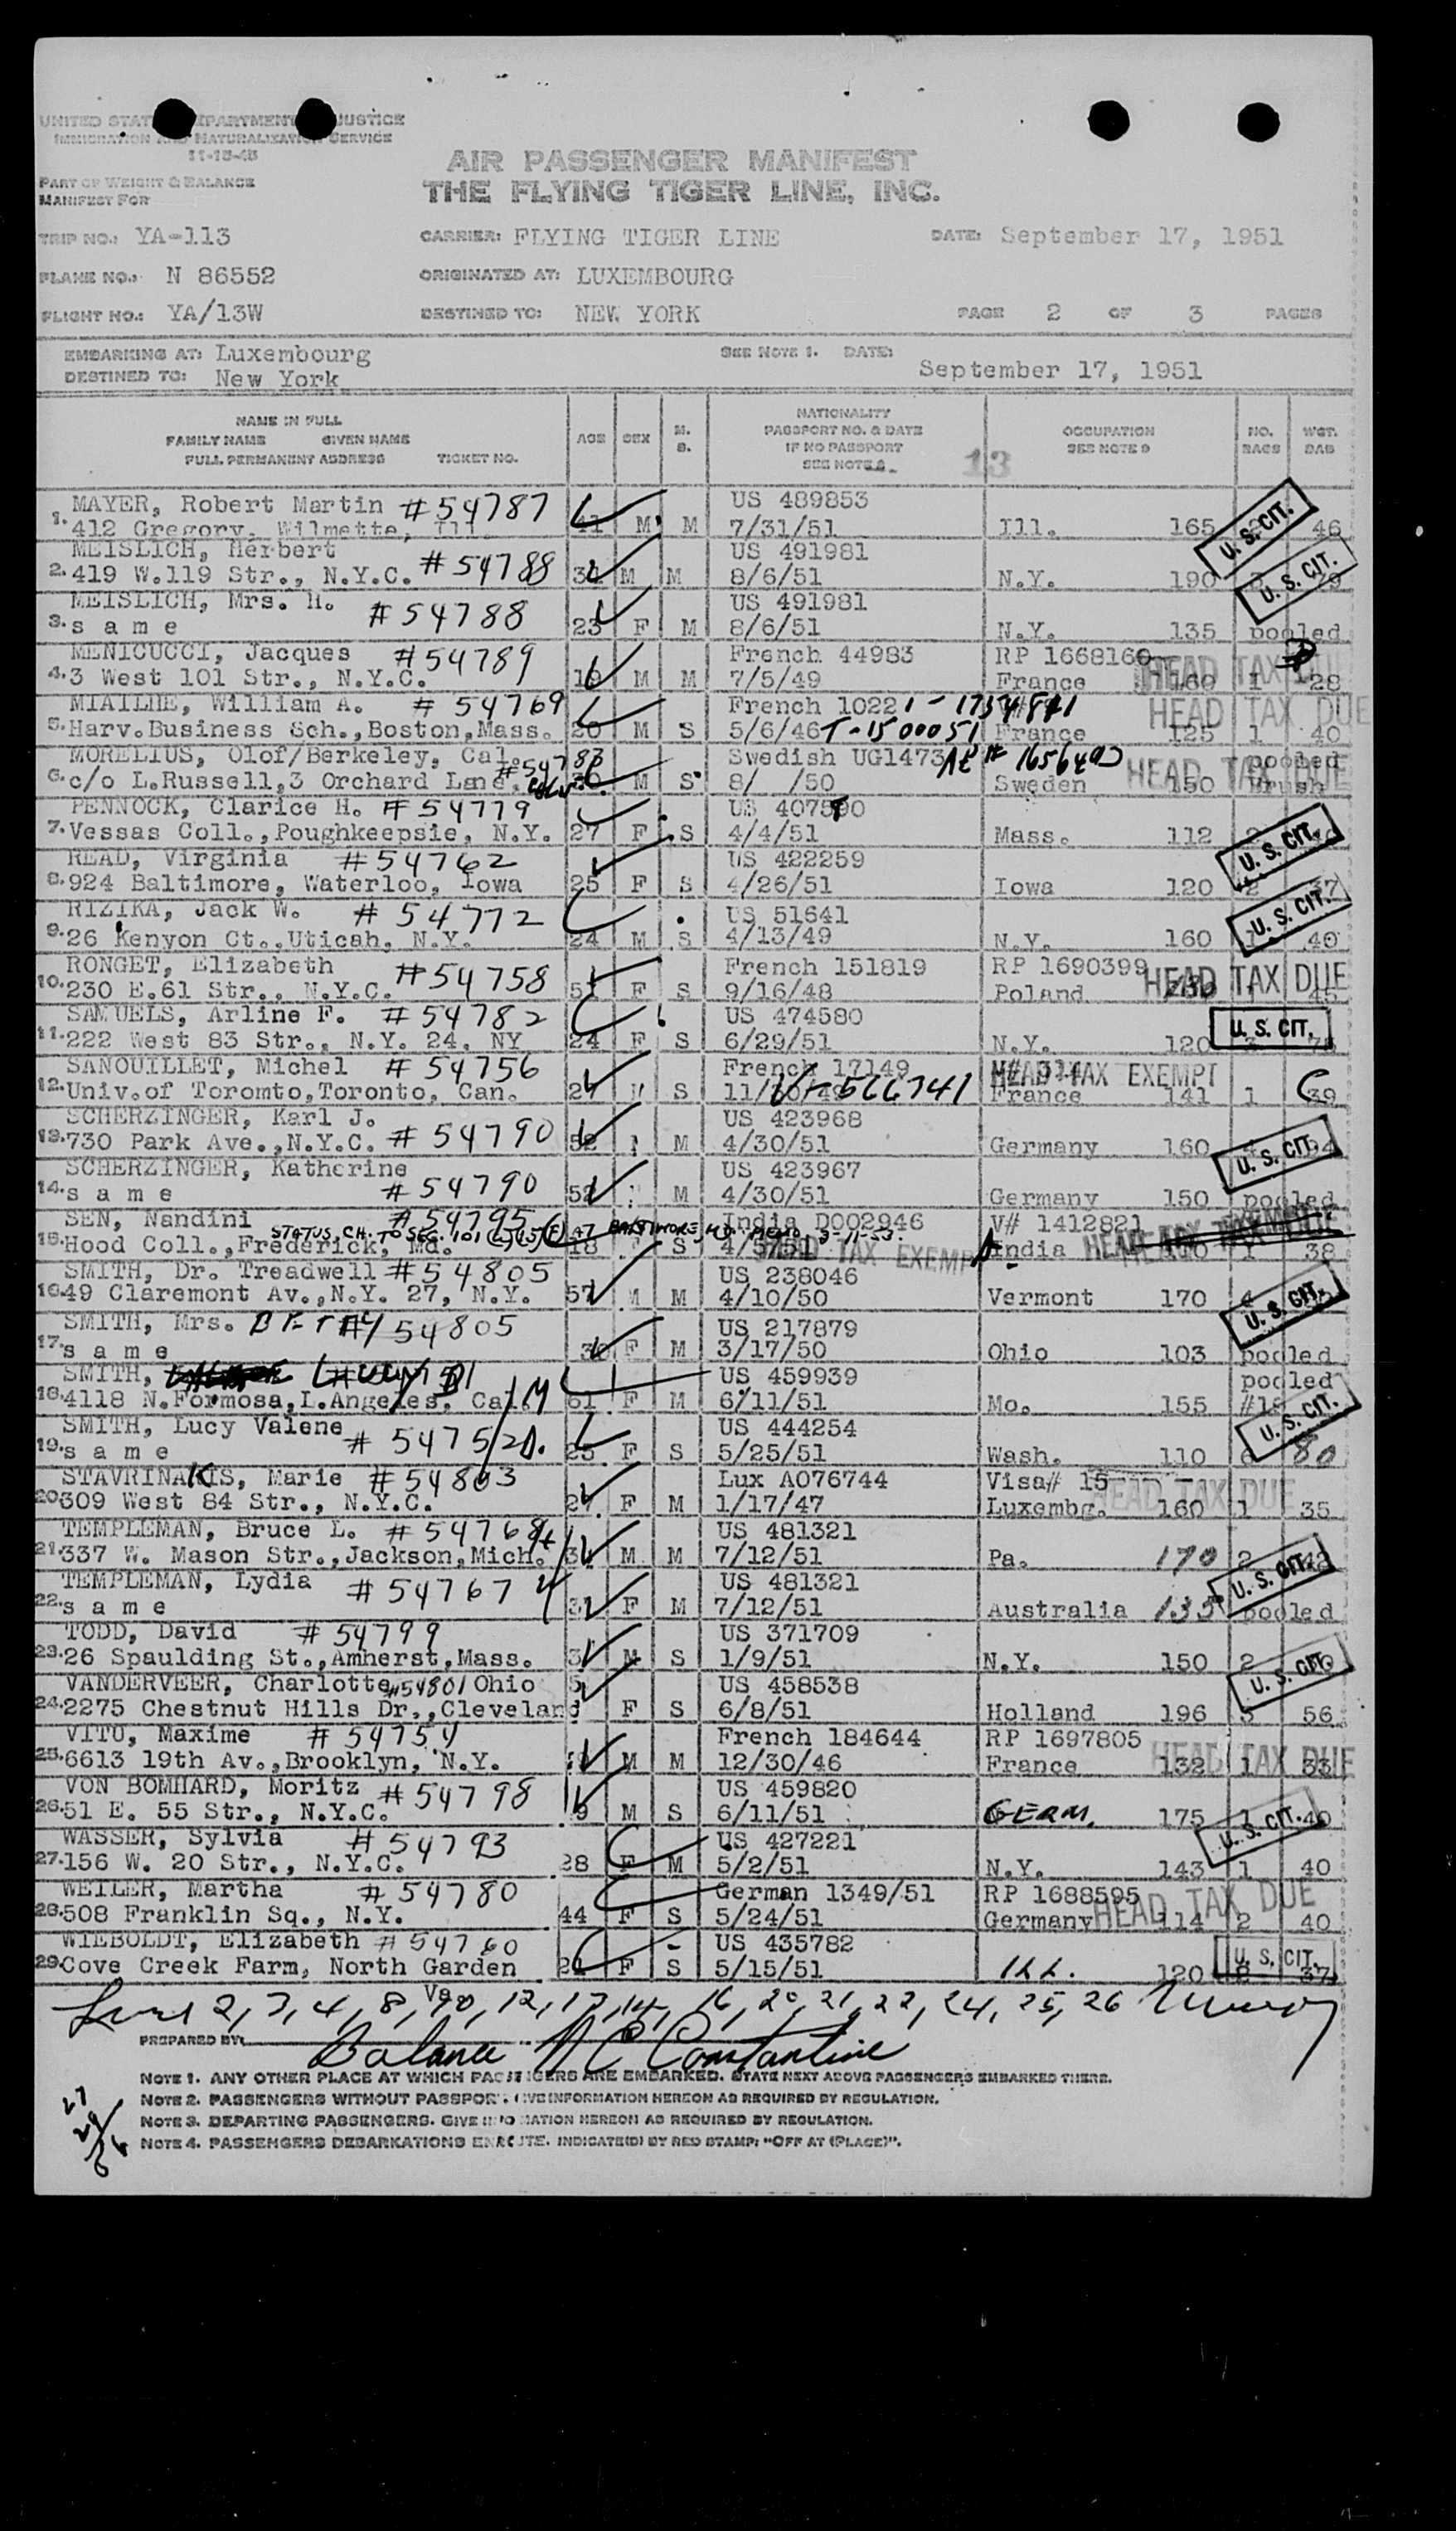 UNITED STATES DEPARTMENT OF JUSTICE
IMMIGRATION AND NATURALIZATION SERVICE
11-15-45
PART OF WEIGHT & BALANCE
MANIFEST FOR
AIR PASSENGER MANIFEST
THE FLYING TIGER LINE, INC.
TRIP NO.: YA-113 CARRIER: FLYING TIGER LINE DATE: September 17, 1951
PLANE NO.: N 86552 ORIGINATED AT: LUXEMBOURG
FLIGHT NO.: YA/13W DESTINED TO: NEW YORK PAGE 2 OF 3 PAGES
EMBARKING AT: Luxembourg SEE NOTE 1. DATE:
DESTINED TO: New York September 17, 1951
NAME IN FULL
FAMILY NAME GIVEN NAME
FULL PERMANENT ADDRESS TICKET NO.
AGE SEX M. S.
NATIONALITY
PASSPORT NO. & DATE
IF NO PASSPORT
SEE NOTE 2.
13
OCCUPATION
SEE NOTE 3
NO. BAGS
WGT. BAG
MAYER, Robert Martin #54787 US 489853
1. 412 Gregory, Wilmette, Ill. 41 M M 7/31/51 Ill. 165 46 U.S.CIT.
MEISLICH, Herbert #54788 US 491981
2. 419 W.119 Str., N.Y.C. M M 8/6/51 N.Y. 190 3 79 U.S.CIT.
MEISLICH, Mrs. H. #54788 US 491981
3. s a m e 23 F M 8/6/51 N.Y. 135 pooled
MENICUCCI, Jacques #54789 French 44983 RP 1668160
4. 3 West 101 Str., N.Y.C. M M 7/5/49 France 160 1 28 HEAD TAX DUE
MIAILHE, William A. #54769 French 10221-1734841
5. Harv.Business Sch.,Boston,Mass. 20 M S 5/6/46 T-1500051 France 125 1 40 HEAD TAX DUE
MORELIUS, Olof/Berkeley, Cal. #54783 Swedish UG1473 pooled
6. c/o L.Russell,3 Orchard Lane, 30 M S 8/ /50 Sweden 150 Brush HEAD TAX DUE
PENNOCK, Clarice H. #54779 US 407590
7. Vessas Coll.,Poughkeepsie, N.Y. 27 F S 4/4/51 Mass. 112 U.S.CIT.
READ, Virginia #54762 US 422259
8. 924 Baltimore, Waterloo, Iowa 25 F S 4/26/51 Iowa 120 2 37 U.S.CIT.
RIZIKA, Jack W. #54772 US 51641
9. 26 Kenyon Ct.,Uticah, N.Y. 24 M S 4/13/49 N.Y. 160 1 40
RONGET, Elizabeth #54758 French 151819 RP 1690399
10. 230 E.61 Str., N.Y.C. 51 F S 9/16/48 Poland 1 45 HEAD TAX DUE
SAMUELS, Arline F. #54782 US 474580
11. 222 West 83 Str., N.Y. 24, NY 24 F S 6/29/51 N.Y. 120 3 U.S.CIT.
SANOUILLET, Michel #54756 French 17149 HEAD TAX EXEMPT
12. Univ.of Toromto,Toronto, Can. 27 M S V-566741 France 141 1 39
SCHERZINGER, Karl J. US 423968
13. 730 Park Ave.,N.Y.C. #54790 52 M 4/30/51 Germany 160 4 94 U.S.CIT.
SCHERZINGER, Katherine US 423967
14. s a m e #54790 52 M 4/30/51 Germany 150 pooled
SEN, Nandini #54795 India D002946 V# 1412821
STATUS CH. TO SEC. BALTIMORE, MD. MEMO 3-11-53.
15. Hood Coll.,Frederick, Md. 18 S India 1 38 HEAD TAX EXEMPT HEAD TAX DUE
SMITH, Dr. Treadwell #54805 US 238046
16. 49 Claremont Av.,N.Y. 27, N.Y. 57 M M 4/10/50 Vermont 170 4 U.S.CIT.
SMITH, Mrs. BETTY #54805 US 217879
17. s a m e F M 3/17/50 Ohio 103 pooled
SMITH, Lucy US 459939 pooled
18. 4118 N.Formosa,L.Angeles, Cal. 61 F M 6/11/51 Mo. 155 U.S.CIT.
SMITH, Lucy Valene #54752 US 444254
19. s a m e 25 F S 5/25/51 Wash. 110 6 80
STAVRINAKIS, Marie #54803 Lux A076744 Visa# 15
20. 309 West 84 Str., N.Y.C. 27 F M 1/17/47 Luxembg. 160 1 35 HEAD TAX DUE
TEMPLEMAN, Bruce L. #54768 US 481321
21. 337 W. Mason Str.,Jackson,Mich. M M 7/12/51 Pa. 170 2 42 U.S.CIT.
TEMPLEMAN, Lydia #54767 US 481321
22. s a m e 31 F M 7/12/51 Australia 135 pooled
TODD, David #54799 US 371709
23. 26 Spaulding St.,Amherst,Mass. M S 1/9/51 N.Y. 150 2 U.S.CIT.
VANDERVEER, Charlotte #54801 Ohio US 458538
24. 2275 Chestnut Hills Dr.,Cleveland F S 6/8/51 Holland 196 3 56
VITU, Maxime #54754 French 184644 RP 1697805
25. 6613 19th Av.,Brooklyn, N.Y. M M 12/30/46 France 132 1 33 HEAD TAX DUE
VON BOMHARD, Moritz #54798 US 459820
26. 51 E. 55 Str., N.Y.C. M S 6/11/51 GERM. 175 1 40 U.S.CIT.
WASSER, Sylvia #54793 US 427221
27. 156 W. 20 Str., N.Y.C. 28 F M 5/2/51 N.Y. 143 1 40
WEILER, Martha #54780 German 1349/51 RP 1688595
28. 508 Franklin Sq., N.Y. 44 F S 5/24/51 Germany 114 2 40 HEAD TAX DUE
WIEBOLDT, Elizabeth #54760 US 435782
29. Cove Creek Farm, North Garden 21 F S 5/15/51 ILL. 120 37 U.S.CIT.
Va.
2, 3, 4, 8, 10, 12, 13, 14, 16, 20, 21, 22, 24, 25, 26
PREPARED BY: Balance N C Constantine
NOTE 1. ANY OTHER PLACE AT WHICH PASSENGERS ARE EMBARKED. STATE NEXT ABOVE PASSENGERS EMBARKED THERE.
NOTE 2. PASSENGERS WITHOUT PASSPORT. GIVE INFORMATION HEREON AS REQUIRED BY REGULATION.
NOTE 3. DEPARTING PASSENGERS. GIVE INFORMATION HEREON AS REQUIRED BY REGULATION.
NOTE 4. PASSENGERS DEBARKATIONS ENROUTE. INDICATE(D) BY RED STAMP: "OFF AT (PLACE)".